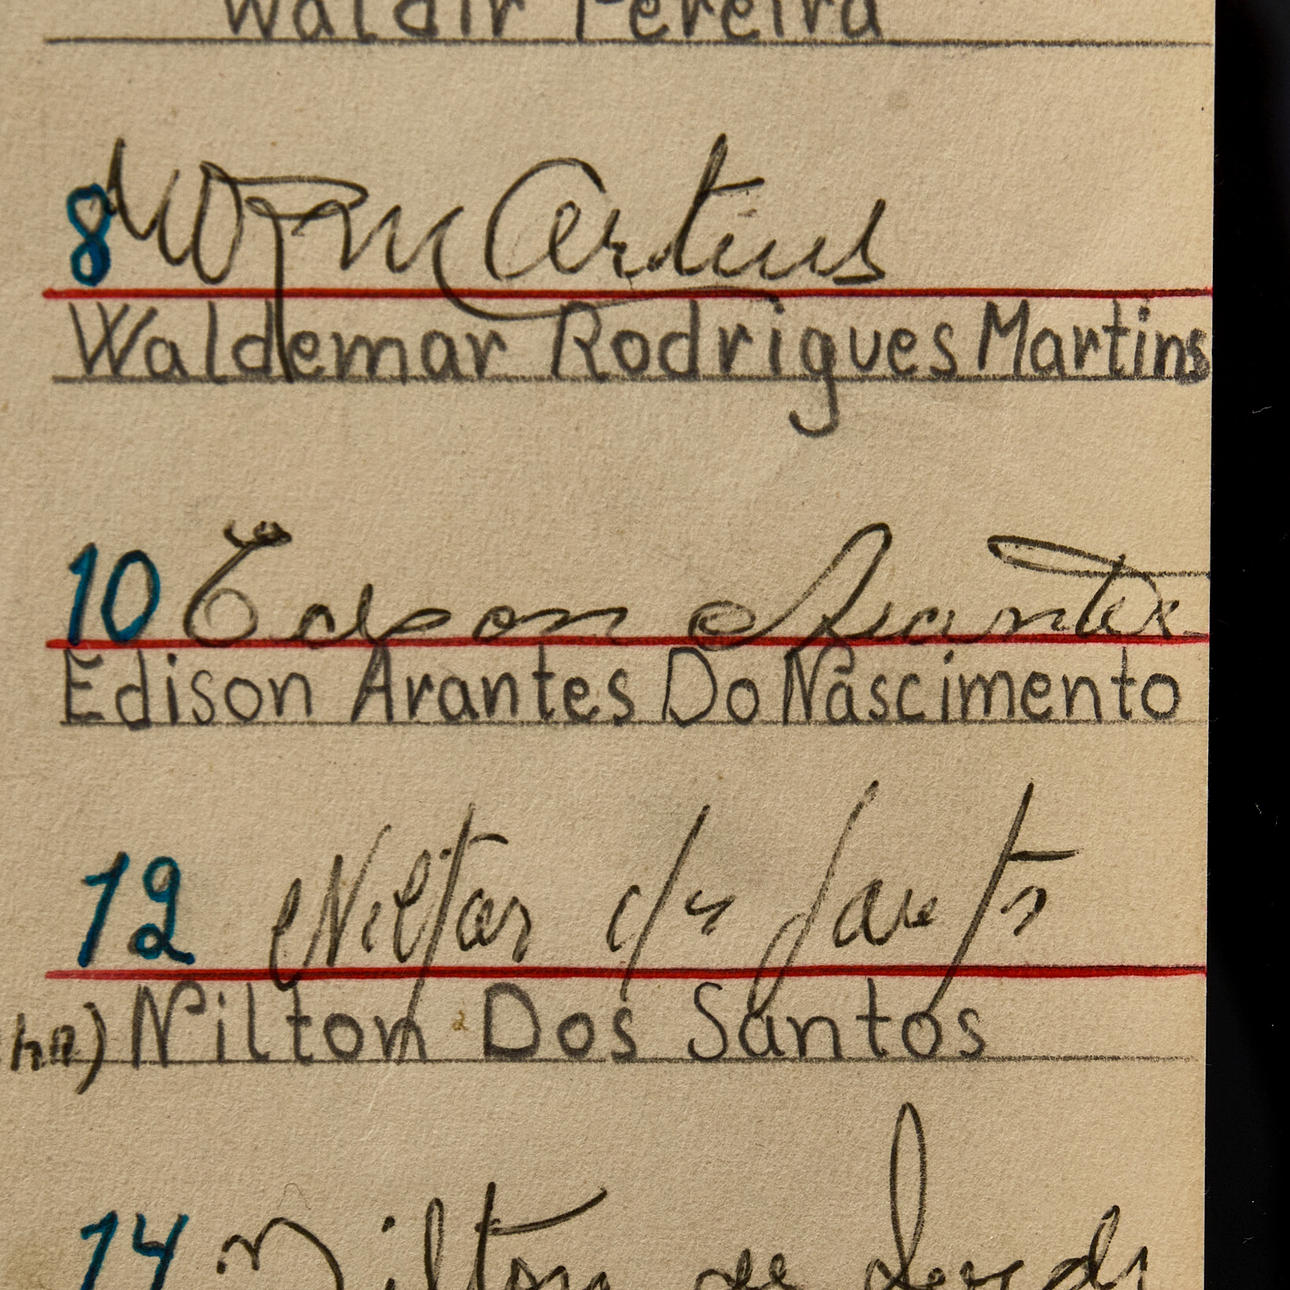 Waldir Pereira
8 W R Martins
Waldemar Rodrigues Martins
10 Edson Arantes
Edison Arantes Do Nascimento
12 Nilton dos Santos
Nilton Dos Santos
14 Nilton de